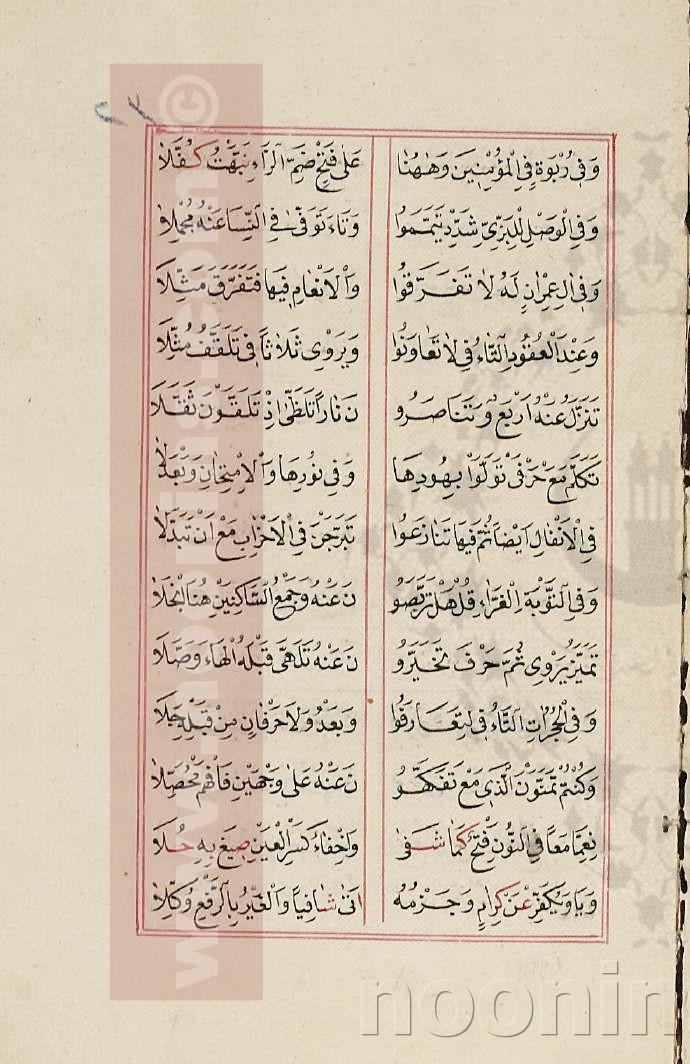 ٢٢
وَفِي رُبْوَةٍ فِي الْمُؤْمِنِينَ وَهَهُنَا عَلَى فَتْحِ ضَمِّ الرَّاءِ نَبَّهْتُ كُفَّلَا
وَفِي الْوَصْلِ لِلْبَزِّيِّ شَدِّدْ تَيَمَّمُوا وَتَاءَ تَوَفَّى فِي النِّسَا عَنْهُ مُجْمِلَا
وَفِي آلِ عِمْرَانٍ لَهُ لَا تَفَرَّقُوا وَالْأَنْعَامِ فِيهَا فَتَفَرَّقَ مَثِّلَا
وَعِنْدَ الْعُقُودِ التَّاءُ فِي لَا تَعَاوَنُوا وَيَرْوِي ثَلَاثًا فِي تَلَقَّفُ مُثِّلَا
تَنَزَّلُ عَنْهُ أَرْبَعٌ وَتَنَاصَرُو نَ نَارًا تَلَظَّى إِذْ تَلَقَّوْنَ ثُقِّلَا
تَكَلَّمُ مَعْ حَرْفَيْ تَوَلَّوْا بِهُودِهَا وَفِي نُورِهَا وَالْامْتِحَانِ وَبَعْدَلَا
فِي الْأَنْفَالِ أَيْضًا ثُمَّ فِيهَا تَنَازَعُوا تَبَرَّجْنَ فِي الْأَحْزَابِ مَعْ أَنْ تَبَدَّلَا
وَفِي التَّوْبَةِ الْغَرَّاءِ قُلْ هَلْ تَرَبَّصُو نَ عَنْهُ وَجَمْعُ السَّاكِنَيْنِ هُنَا انْجَلَا
تَمَيَّزُ يَرْوِي ثُمَّ حَرْفَ تَخَيَّرُو نَ عَنْهُ تَلَهَّى قَبْلَهُ الْهَاءَ وَصَّلَا
وَفِي الْحُجُرَاتِ التَّاءُ فِي لِتَعَارَفُوا وَبَعْدُ وَلَا حَرْفَانِ مِنْ قَبْلِهِ جَلَا
وَكُنْتُمْ تَمَنَّوْنَ الَّذِي مَعْ تَفَكَّهُو نَ عَنْهُ عَلَى وَجْهَيْنِ فَافْهَمْ مُحَصِّلَا
نِعِمَّا مَعًا فِي النُّونِ فَتْحٌ كَمَا شَفَى وَإِخْفَاءُ كَسْرِ الْعَيْنِ صِيغَ بِهِ حُلَا
وَيَا وَيُكَفِّرْ عَنْ كِرَامٍ وَجَزْمُهُ أَتَى شَافِيًا وَالْغَيْرُ بِالرَّفْعِ وُكِّلَا
noonin